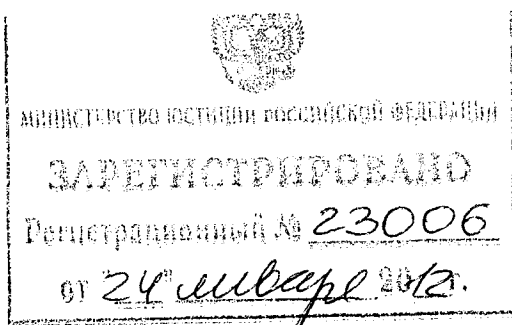 МИНИСТЕРСТВО ЮСТИЦИИ РОССИЙСКОЙ ФЕДЕРАЦИИ
ЗАРЕГИСТРИРОВАНО
Регистрационный № 23006
от "24" января 2012 г.